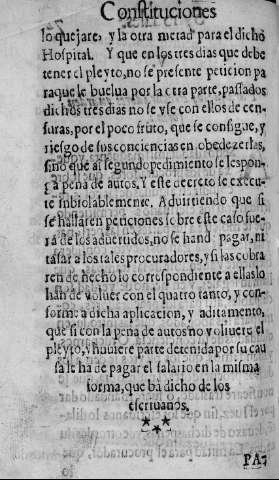 Constituciones
lo quejare, y la otra metad para el dicho
Hospital. Y que en los tres dias que debe
tener el pleyto, no se presente peticion pa
raque le buelua por la otra parte, passados
dichos tres dias no se vse con ellos de cen-
suras, por el poco fruto, que se consigue, y
riesgo de sus conciencias en obedezerlas,
sino que al segundo pedimiento se le spon-
ga pena de autos. Y este decreto se execu-
te inbiolablemente. Aduirtiendo que si
se hallaren peticiones sobre este caso fue-
rá de los aduertidos, no se hand pagar, ni
tasar a los tales procuradores, y si las cobra
ren de hecho lo correspondiente a ellas lo
hán de voluer con el quatro tanto, y con-
forme a dicha aplicacion, y aditamento,
que si con la pena de autos no voluiere el
pleyto, y huuiere parte detenida por su cau
sa le ha de pagar el salario en la misma
forma, que ba dicho de los
escriuanos.
PA-